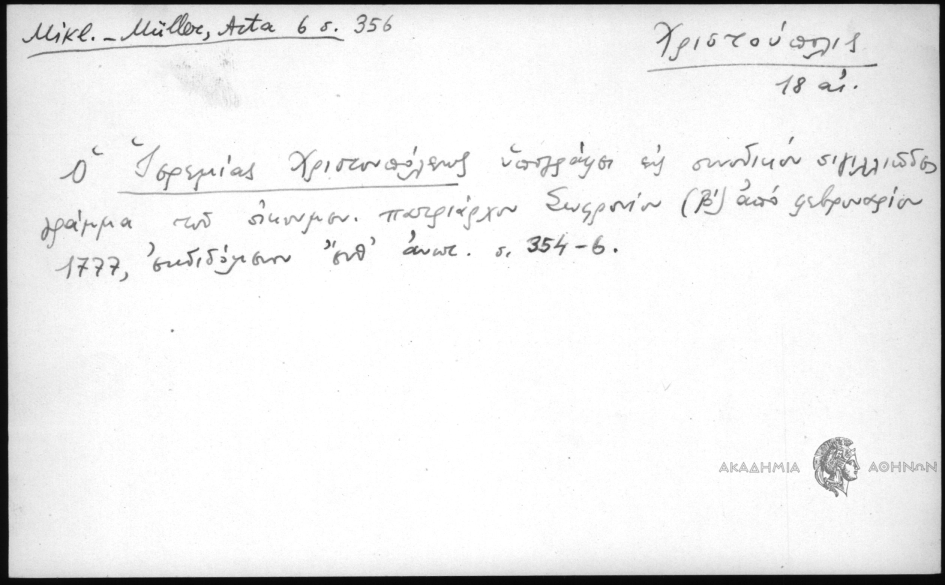 Mikl. – Müller, Acta 6 σ. 356
Χριστούπολις
18 αἰ.
Ὁ Ἱερεμίας Χριστουπόλεως ὑπογράφει εἰς συνοδικόν σιγιλλιῶδες
γράμμα τοῦ οἰκουμεν. πατριάρχου Σωφρονίου (β΄) ἀπό φεβρουαρίου
1777, ἐκδιδόμενον ἀνωτ. σ. 354–6.
ΑΚΑΔΗΜΙΑ ΑΘΗΝΩΝ